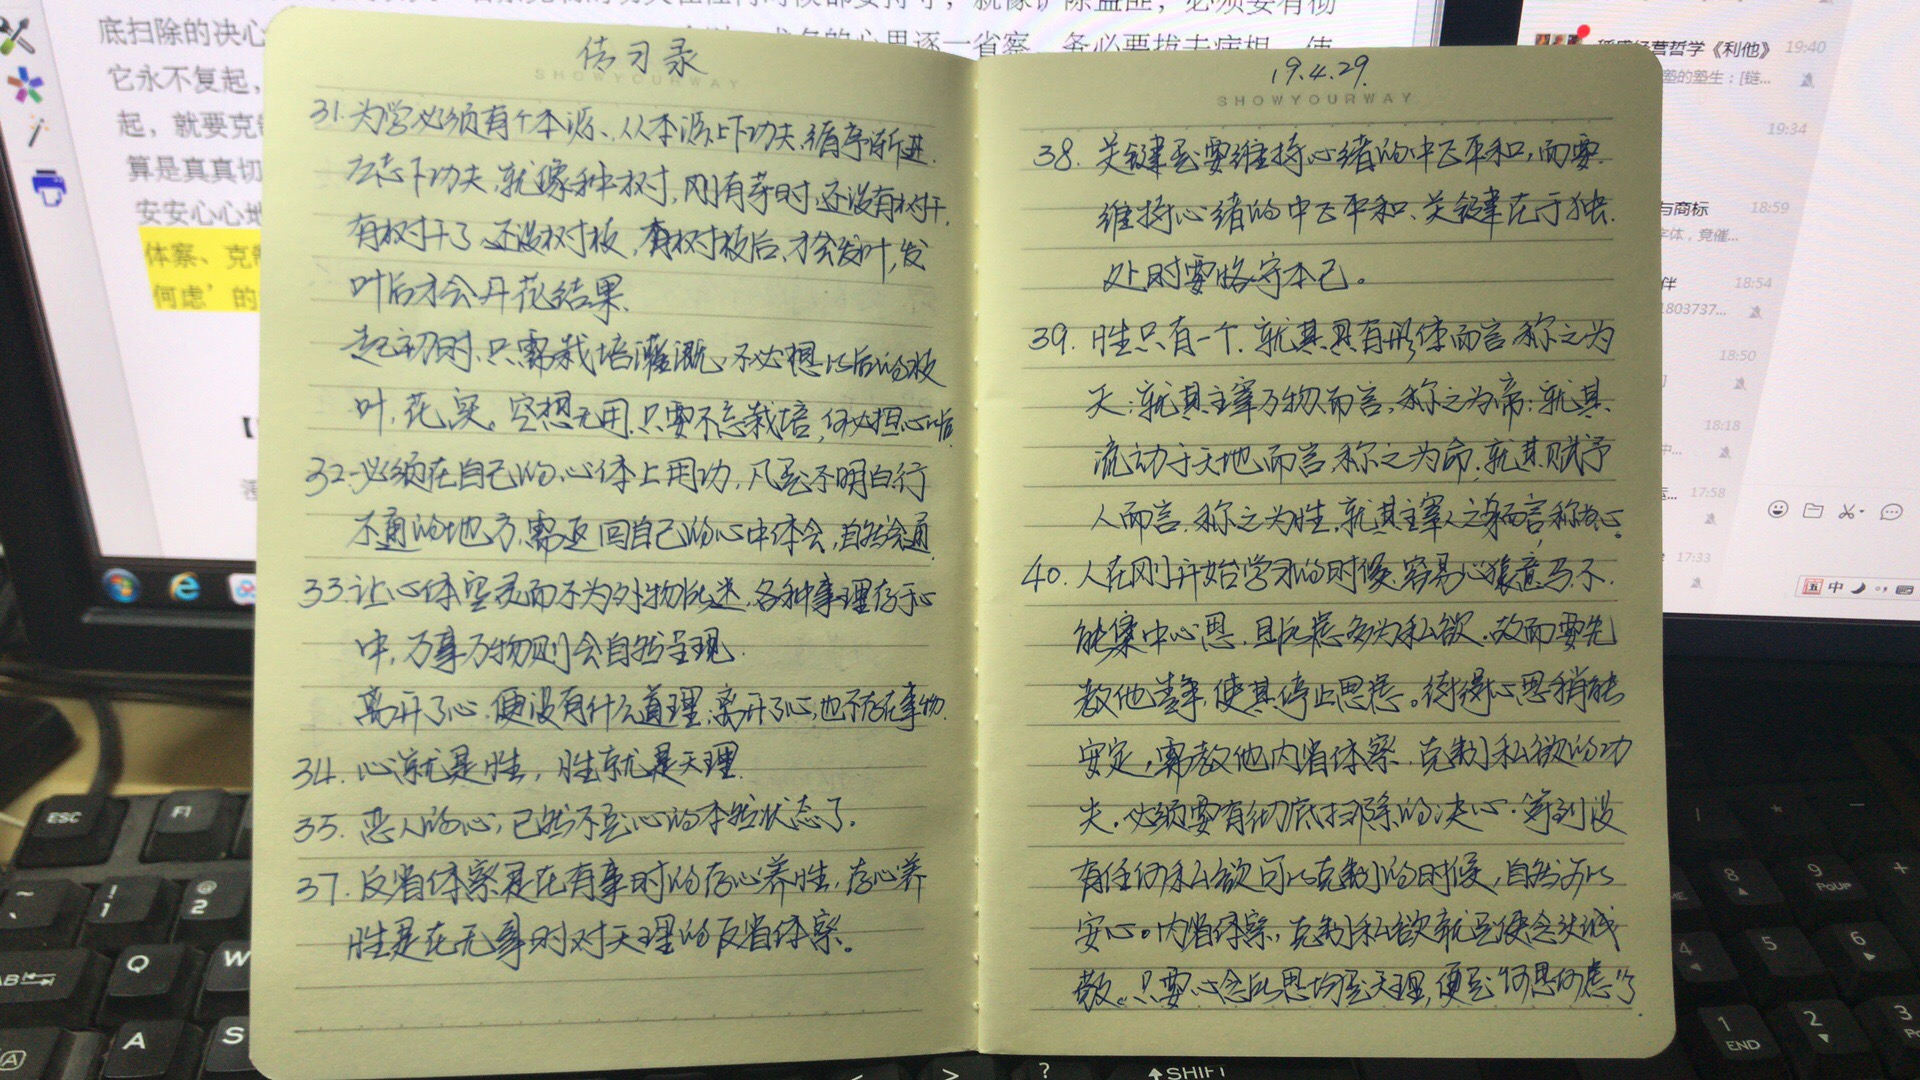 传习录
SHOWYOURWAY
31.为学必须有个本源、从本源上下功夫,循序渐进.
立志下功夫,就像种树,刚有芽时,还没有树干,
有树干了,还没树枝,有树枝后,才会发叶,发
叶后才会开花结果.
起初时,只需栽培灌溉,不必想以后的枝
叶,花,实。空想无用.只要不忘栽培,何必担心啥
32.必须在自己的心体上用功,凡是不明白行
不通的地方,需返回自己的心中体会,自然会通.
33.让心体空灵而不为外物所迷,各种事理存于心
中,万事万物则会自然呈现.
离开了心.便没有什么道理;离开了心,也不存在事物.
34.心就是性,性就是天理.
35.恶人的心,已然不是心的本然状态了.
37.反省体察是在有事时的存心养性,存心养
性是在无事时对天理的反省体察。
19.4.29.
SHOWYOURWAY
38.关键是要维持心绪的中正平和,而要
维持心绪的中正平和、关键在于独
处时要恪守本己。
39.性只有一个.就其具有形体而言称之为
天;就其主宰万物而言,称之为帝;就其
流动于天地而言称之为命,就其赋予
人而言.称之为性,就其主宰人之身而言,称为心。
40.人在刚开始学习的时候,容易心猿意马不
能集中心思.且所虑多为私欲.故而要先
教他静,使其停止思虑。待得心思稍能
安定,需教他内省体察.克制私欲的功
夫.必须要有彻底扫除的决心.等到没
有任何私欲可以克制的时候,自然可以
安心。内省体察,克制私欲就是使念头诚
敬。只要心念所思均是天理,便是“何思何虑”了.
底扫除的决心
它永不复起,
起,就要克
算是真真切
安安心心地
体察、克制
何虑’的
稻盛经营哲学《利他》
19:40
塾的塾生:[链...
19:34
与商标
18:59
字体,竟催...
伴
18:54
1803737...
18:50
18:18
17:58
17:33
中
ESC
F1
~
!
1
@
2
Q
W
A
S
AB
<
>
?
SHIFT
8
9
PGUP
+
4
5
6
1
END
2
3